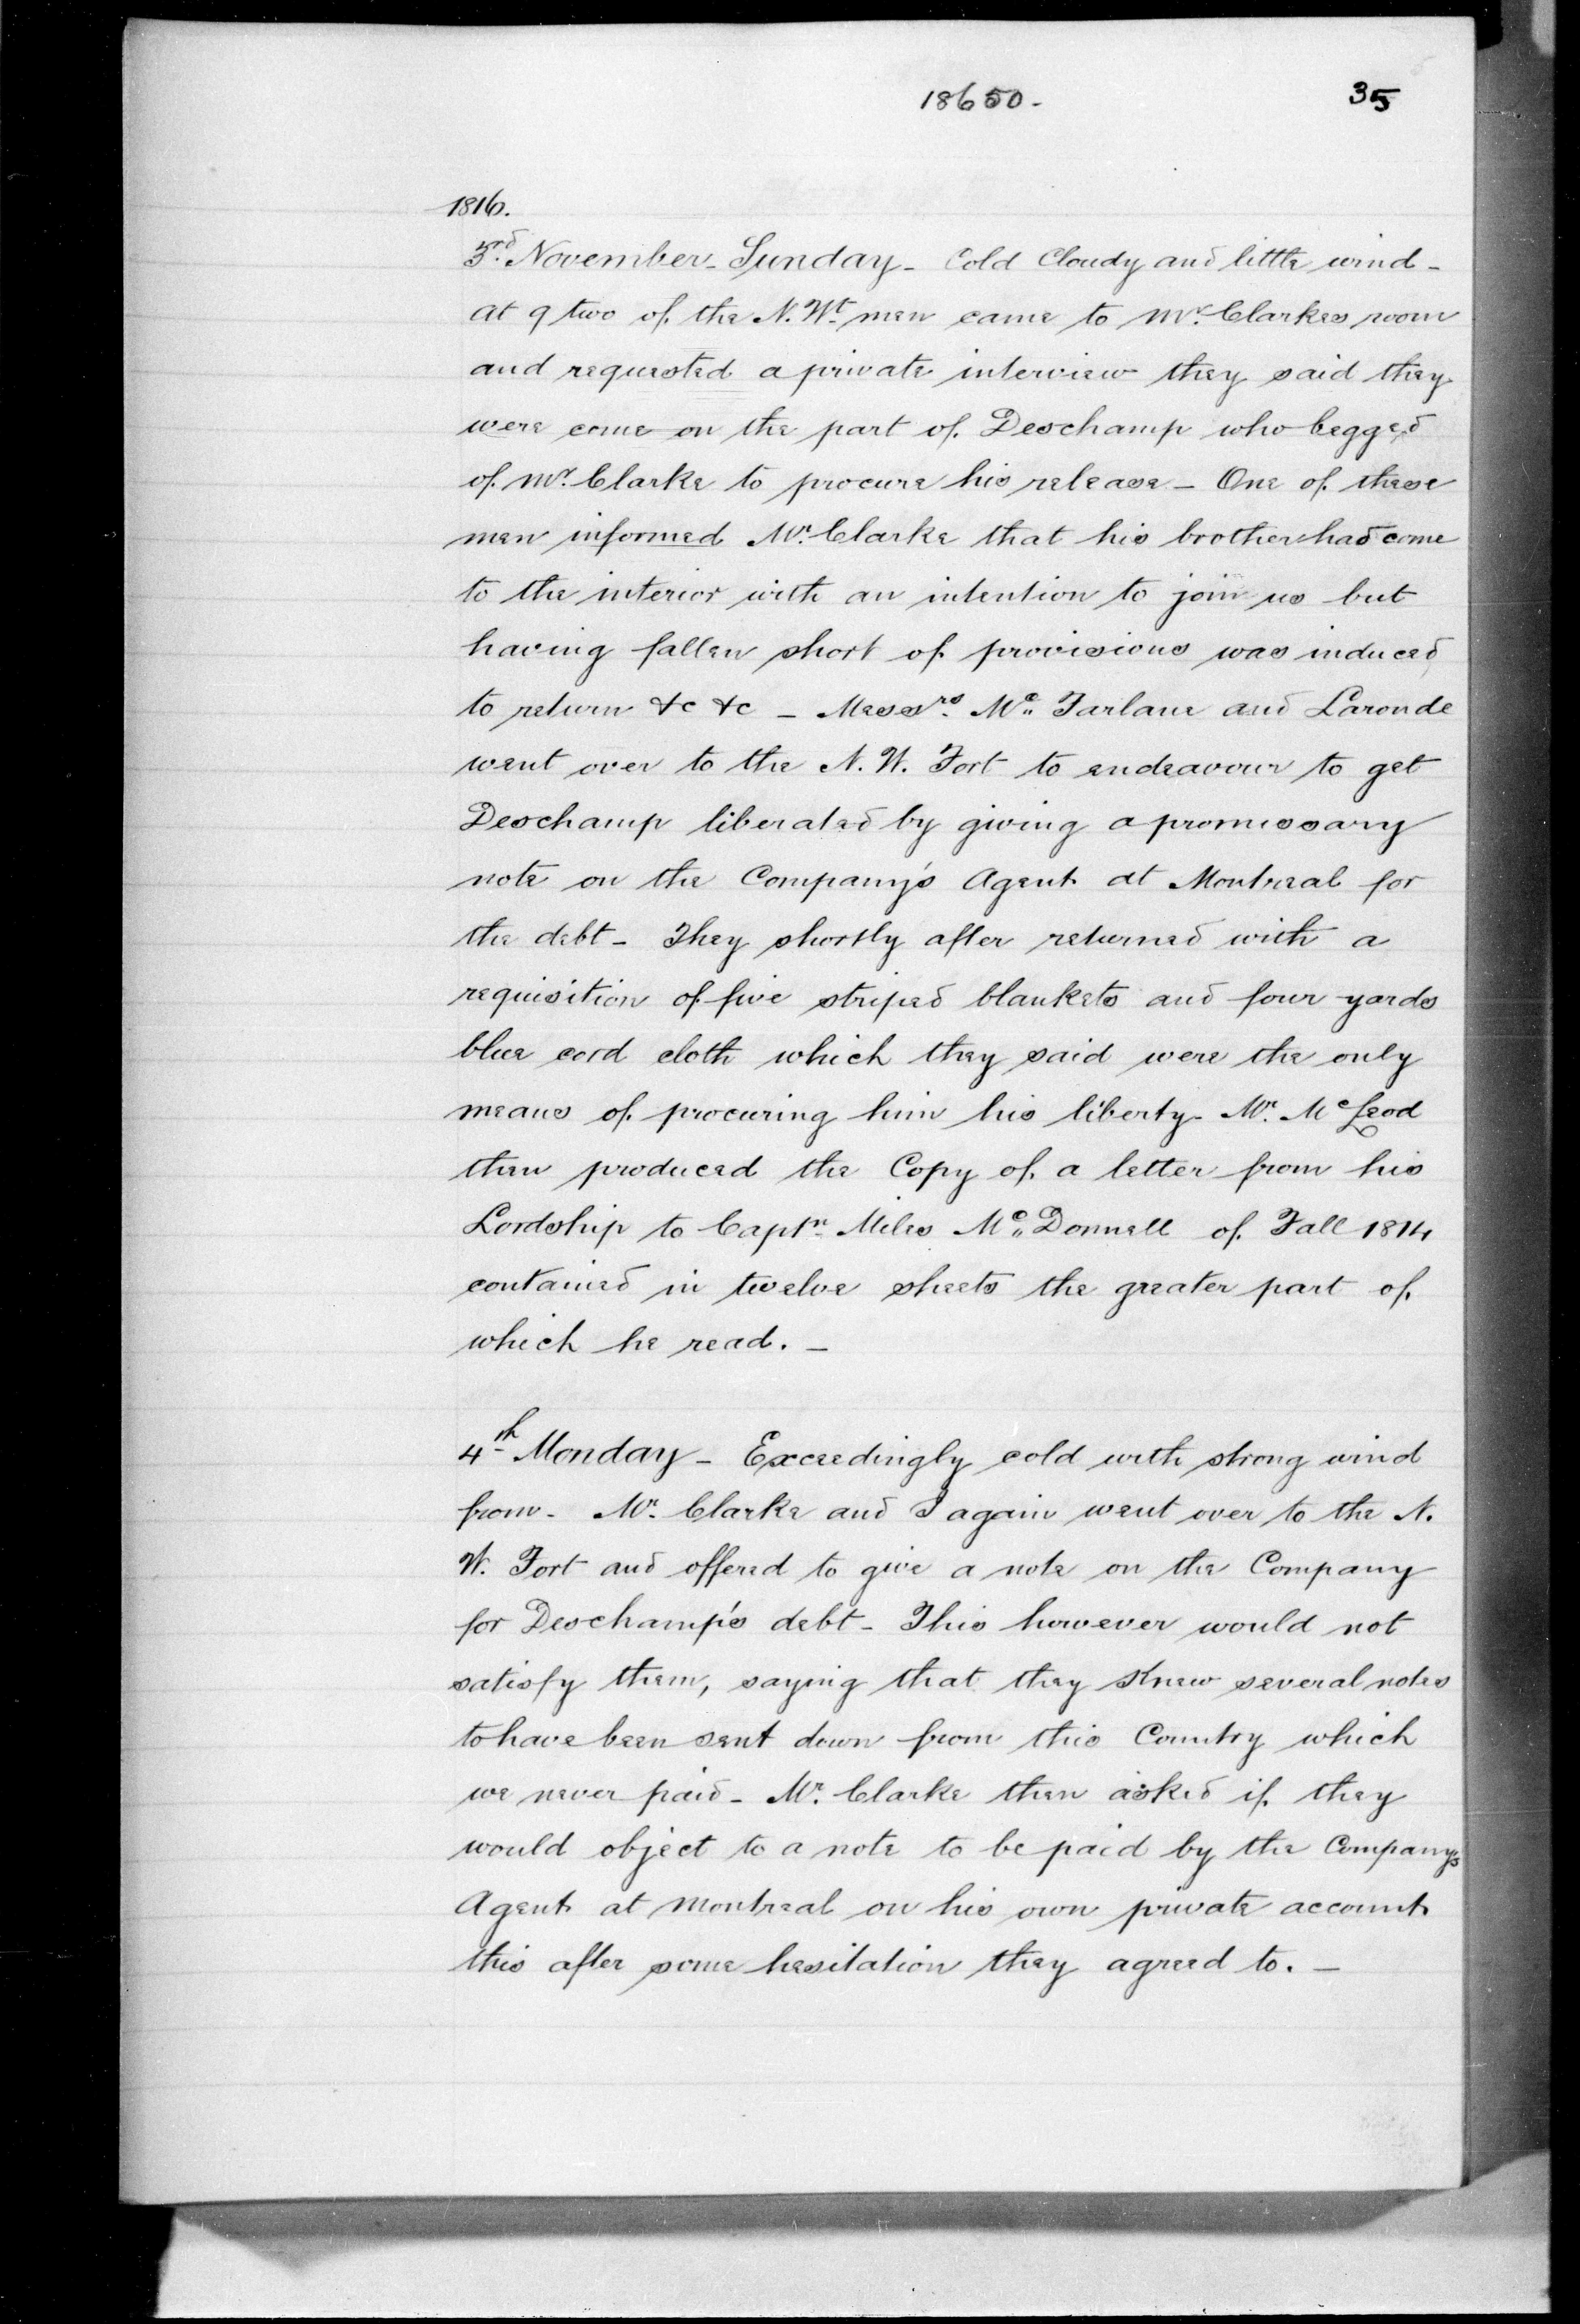 18650-
35
1816.
3rd. November - Sunday - Cold Cloudy and little wind -
at 9 two of the N. Wt. men came to Mr. Clarkes room
and requested a private interview they said they
were come on the part of Deschamp who begged
of Mr. Clarke to procure his release - One of these
men informed Mr. Clarke that his brother had come
to the interior with an intention to join us but
having fallen short of provisions was induced
to return &c &c - Messrs. Mc Farlane and Laronde
went over to the N. W. Fort to endeavour to get
Deschamp liberated by giving a promissary
note on the Company's Agent at Montreal for
the debt - They shortly after returned with a
requisition of five striped blankets and four yards
blue cord cloth which they said were the only
means of procuring him his liberty - Mr. McLeod
then produced the Copy of a letter from his
Lordship to Captn. Miles Mc Donnell of Fall 1814
contained in twelve sheets the greater part of
which he read. -
4th Monday - Exceedingly cold with strong wind
from - Mr. Clarke and I again went over to the N.
W. Fort and offered to give a note on the Company
for Deschamp's debt - This however would not
satisfy them, saying that they knew several notes
to have been sent down from this Country which
we never paid - Mr. Clarke then asked if they
would object to a note to be paid by the Company's
Agent at Montreal on his own private account
this after some hesitation they agreed to. -